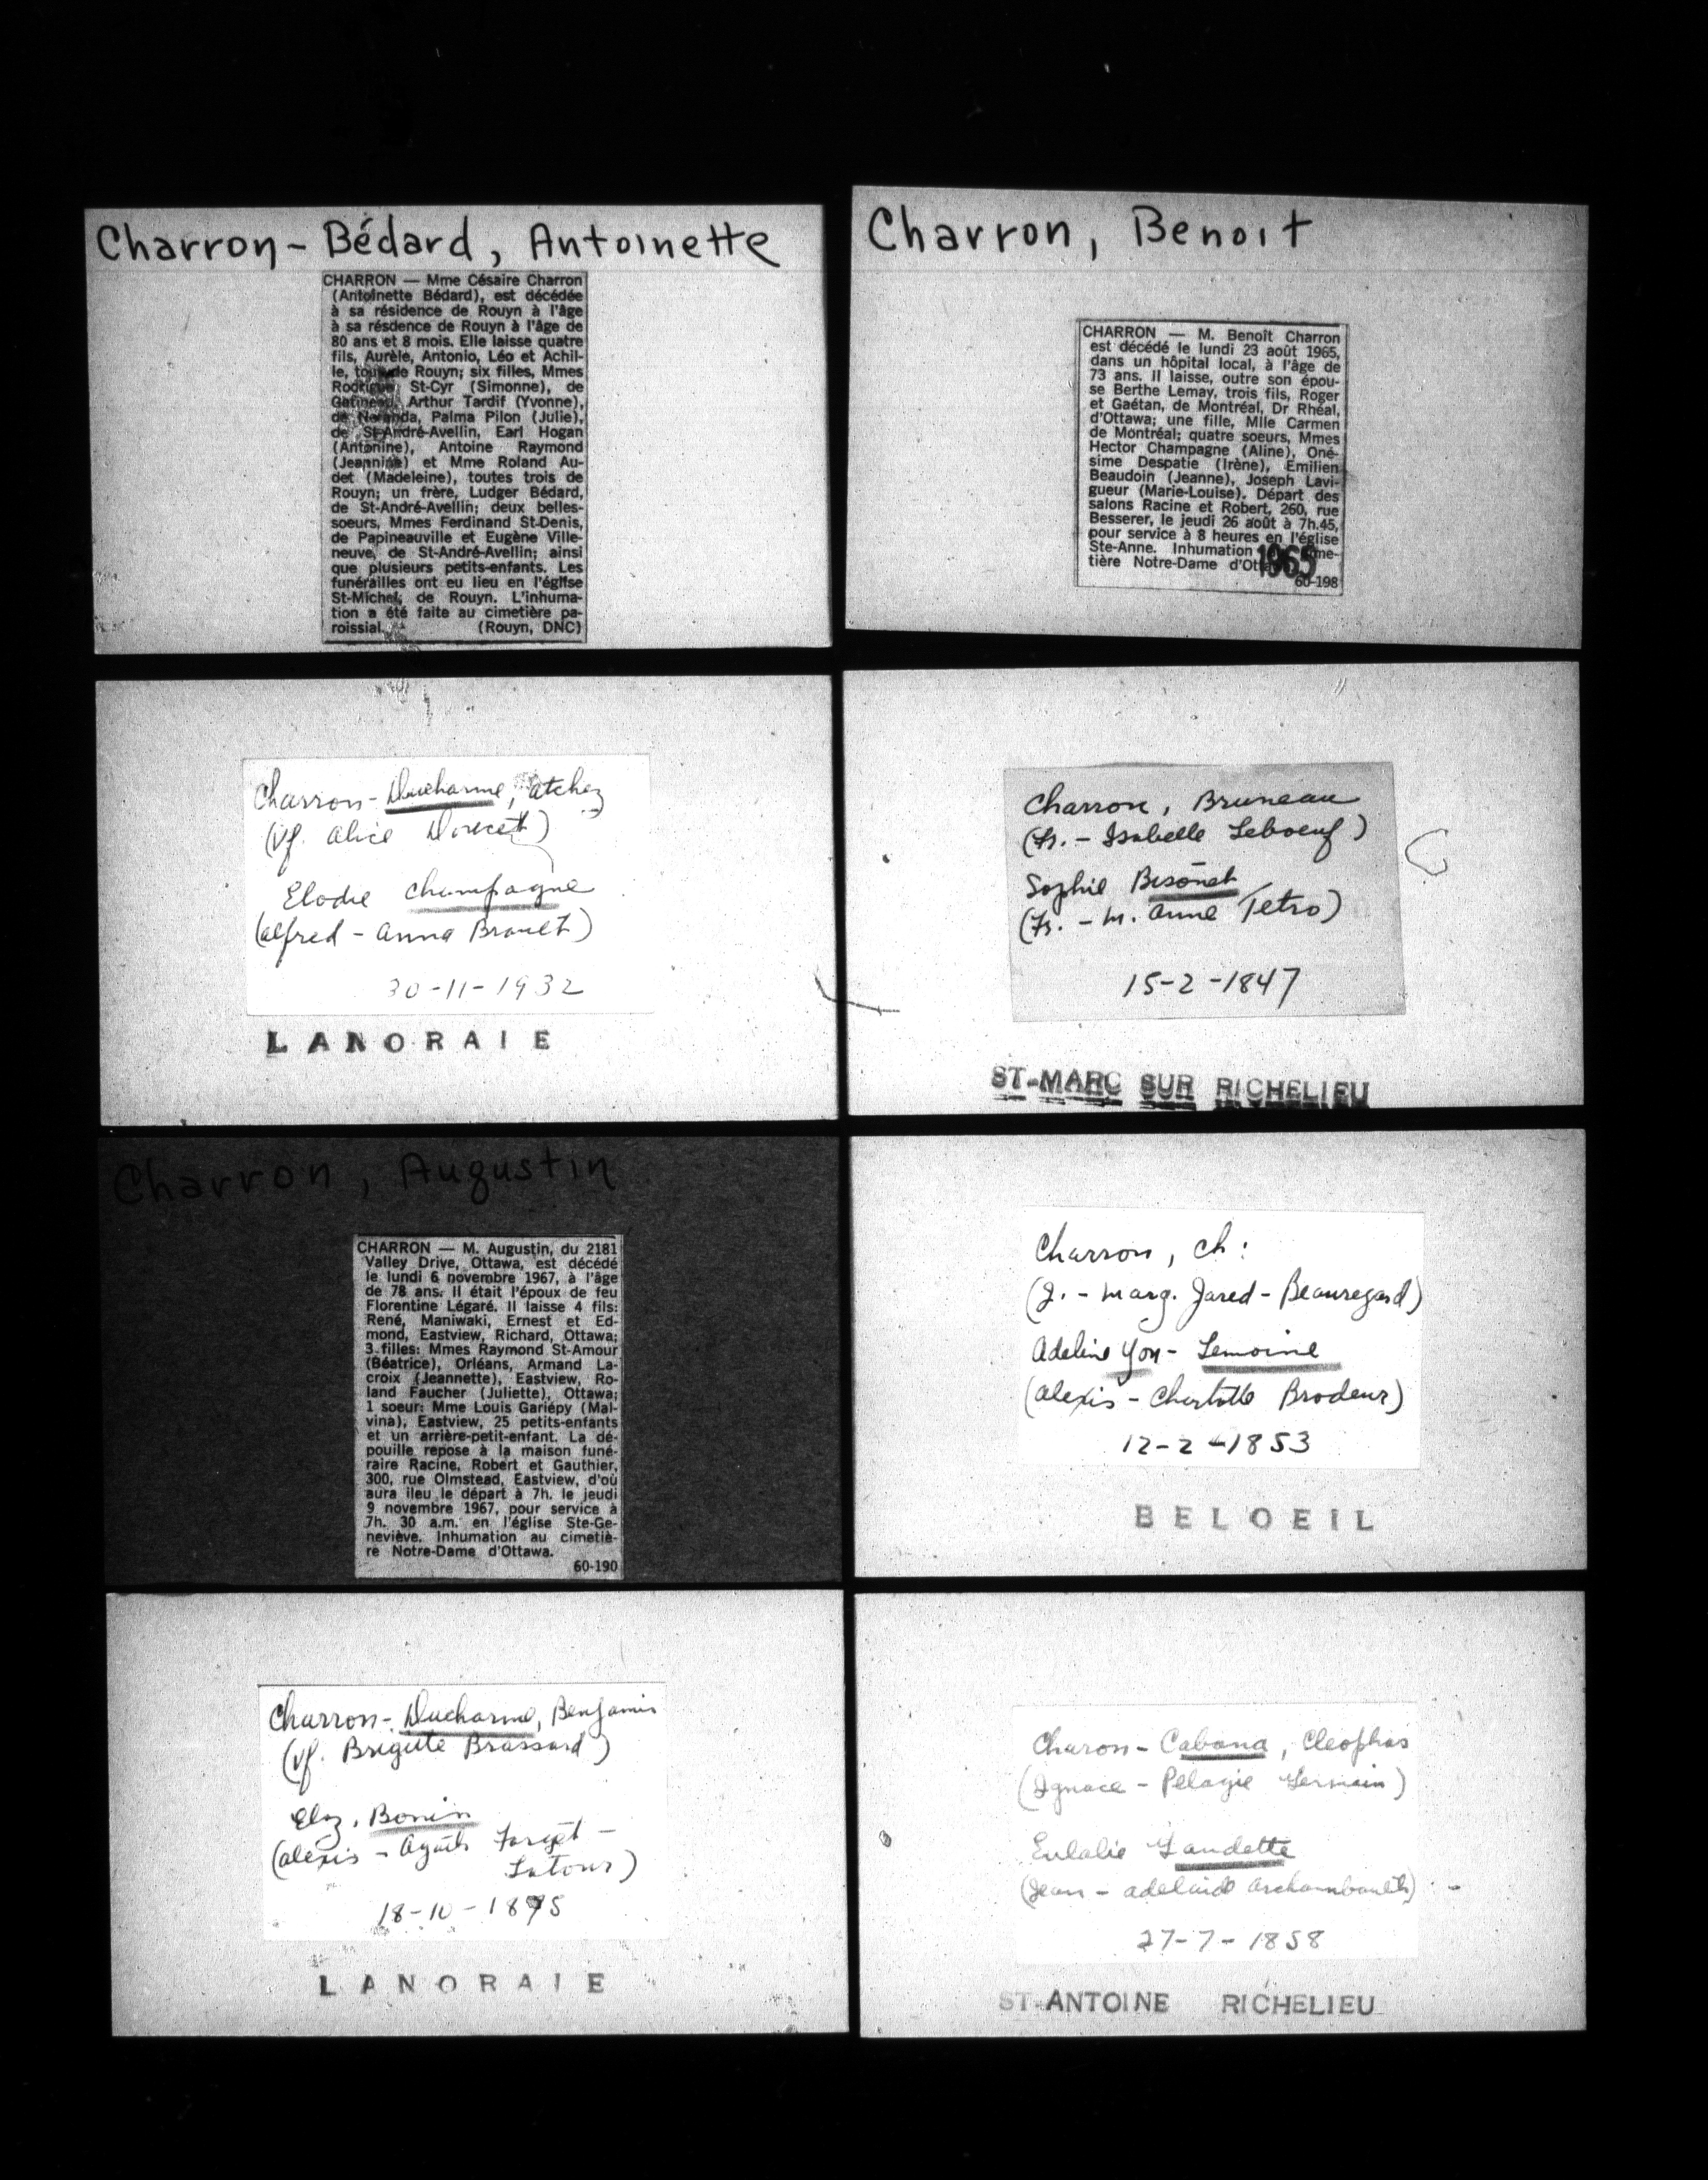 Charron-Bédard, Antoinette
CHARRON — Mme Césaire Charron
(Antoinette Bédard), est décédée
à sa résidence de Rouyn à l'âge
à sa résdence de Rouyn à l'âge de
80 ans et 8 mois. Elle laisse quatre
fils, Aurèle, Antonio, Léo et Achil-
le, tous de Rouyn; six filles, Mmes
Rodrigue St-Cyr (Simonne), de
Gatineau, Arthur Tardif (Yvonne),
de Noranda, Palma Pilon (Julie),
de St-André-Avellin, Earl Hogan
(Antonine), Antoine Raymond
(Jeannine) et Mme Roland Au-
det (Madeleine), toutes trois de
Rouyn; un frère, Ludger Bédard,
de St-André-Avellin; deux belles-
soeurs, Mmes Ferdinand St-Denis,
de Papineauville et Eugène Ville-
neuve, de St-André-Avellin; ainsi
que plusieurs petits-enfants. Les
funérailles ont eu lieu en l'église
St-Michel, de Rouyn. L'inhuma-
tion a été faite au cimetière pa-
roissial. (Rouyn, DNC)
Charron, Benoit
CHARRON — M. Benoît Charron
est décédé le lundi 23 août 1965,
dans un hôpital local, à l'âge de
73 ans. Il laisse, outre son épou-
se Berthe Lemay, trois fils, Roger
et Gaétan, de Montréal, Dr Rhéal,
d'Ottawa; une fille, Mlle Carmen
de Montréal; quatre soeurs, Mmes
Hector Champagne (Aline), Oné-
sime Despatie (Irène), Emilien
Beaudoin (Jeanne), Joseph Lavi-
gueur (Marie-Louise). Départ des
salons Racine et Robert, 260, rue
Besserer, le jeudi 26 août à 7h.45,
pour service à 8 heures en l'église
Ste-Anne. Inhumation
tière Notre-Dame
1965
60-198
Charron-Ducharme, atchez
(Vf. Alice Doucet)
Elodie Champagne
(Alfred - Anna Brault)
30-11-1932
LANORAIE
Charron, Bruneau
(Fr. - Isabelle Leboeuf)
Sophie Bisonet
(Fr. - M. Anne Tetro)
15-2-1847
ST-MARC SUR RICHELIEU
Charron, Augustin
CHARRON — M. Augustin, du 2181
Valley Drive, Ottawa, est décédé
le lundi 6 novembre 1967, à l'âge
de 78 ans. Il était l'époux de feu
Florentine Légaré. Il laisse 4 fils:
René, Maniwaki, Ernest et Ed-
mond, Eastview, Richard, Ottawa;
3 filles: Mmes Raymond St-Amour
(Béatrice), Orléans, Armand La-
croix (Jeannette), Eastview, Ro-
land Faucher (Juliette), Ottawa;
1 soeur: Mme Louis Gariépy (Mal-
vina), Eastview, 25 petits-enfants
et un arrière-petit-enfant. La dé-
pouille repose à la maison funé-
raire Racine, Robert et Gauthier,
300, rue Olmstead, Eastview, d'où
aura ileu le départ à 7h. le jeudi
9 novembre 1967, pour service à
7h. 30 a.m. en l'église Ste-Ge-
neviève. Inhumation au cimetiè-
re Notre-Dame d'Ottawa.
60-190
Charron, Ch:
(J. - Marg. Jared-Beauregard)
Adeline Yon-Lemoine
(Alexis - Charlotte Brodeur)
12-2-1853
BELOEIL
Charron-Ducharme, Benjamin
(Vf. Brigitte Brassard)
Elz. Bonin
(Alexis - Agath Forget-
Latour)
18-10-1895
LANORAIE
Charon-Cabana, Cleophas
(Ignace - Pelagie Germain)
Eulalie Gaudette
(Jean - Adelaide Archambault)
27-7-1858
ST-ANTOINE RICHELIEU